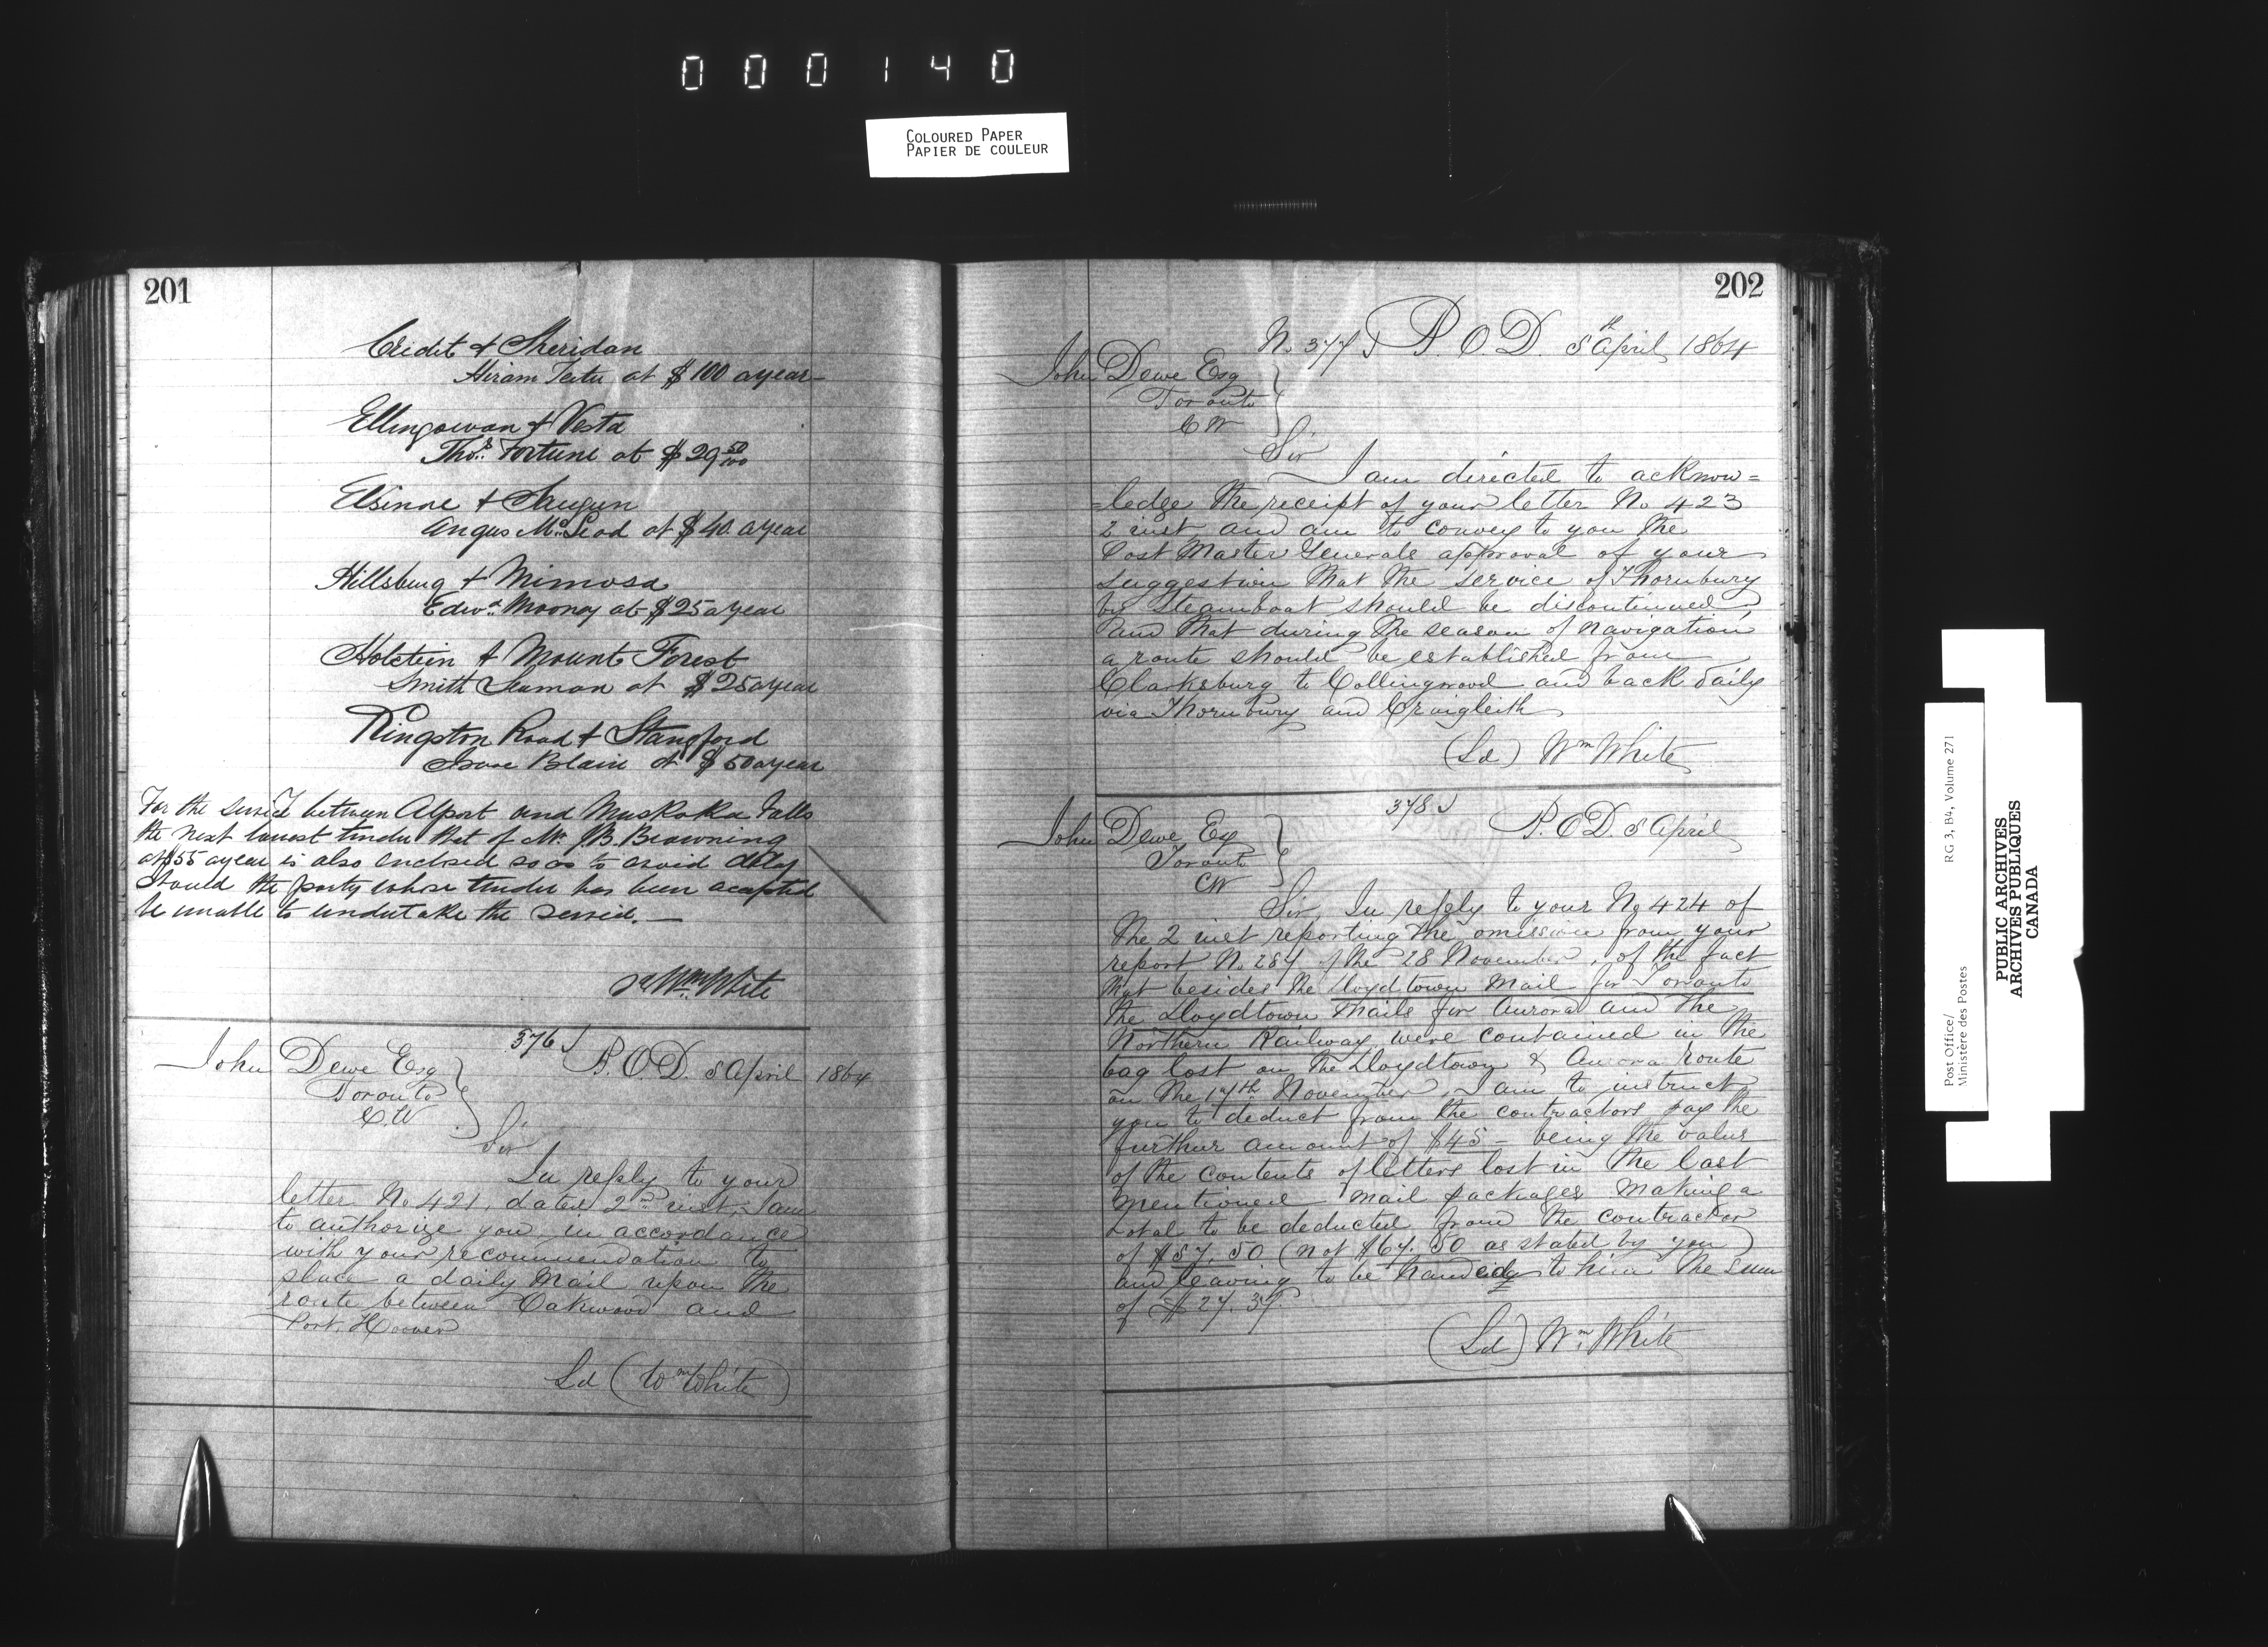 000140
COLOURED PAPER
PAPIER DE COULEUR
201
Credit & Sheridan
Hiram at $100 a year
Ellengowan & Vesta
Thos. Fortune at $29 50/100
Elsinore &
Angus McLeod at $40 a year
Hillsburg & Mimosa
Edwd. Mooney at $25 a year
Holstein & Mount Forest
Smith Seaman at $25 a year
Kingston Road & Stangford
Isaac Blain at $50 a year
For the service between Alport and Muskoka Falls
the next lowest tender that of Mr. J.B. Browning
at $55 a year is also enclosed so as to avoid delay
should the party whose tender has been accepted
be unable to undertake the service.—
sd Wm. White
376
John Dewe Esq
Toronto
C.W
P.O.D. 5 April 1864
Sir
In reply to your
letter No 421, dated 2nd inst, I am
to authorize you in accordance
with your recommendation to
place a daily mail upon the
route between Oakwood and
Port. Hoover
Sd (Wm White)
202
No. 377 P.O.D. 5th April 1864
John Dewe Esq
Toronto
CW
Sir
I am directed to acknow=
=ledge the receipt of your letter No 423
2 inst and am to convey to you the
Post Master Generals approval of your
suggestion that the service of Thornbury
by steamboat should be discontinued,
and that during the season of navigation
a route should be established from
Clarksburg to Collingwood and back daily
via Thornbury and Craigleith
(Sd) Wm White
378
John Dewe Esq
Toronto
CW
P.O.D. 5 April
Sir, In reply to your No 424 of
the 2 inst reporting the omission from your
report No. 287 of the 28 November, of the fact
that besides the Lloydtown Mail for Toronto
the Lloydtown Mails for Aurora and the
Northern Railway were contained in the
bag lost on the Lloydtown & Aurora route
on the 17th November, I am to instruct
you to deduct from the contractors pay the
further amount of $45 – being the value
of the contents of letters lost in the last
mentioned mail packages making a
total to be deducted from the contractor
of $57.50 (not $67.50 as stated by you)
and leaving to be handed to him the sum
of $27.37.
(Sd) Wm. White
Post Office/
Ministère des Postes
RG 3, B4, Volume 271
PUBLIC ARCHIVES
ARCHIVES PUBLIQUES
CANADA